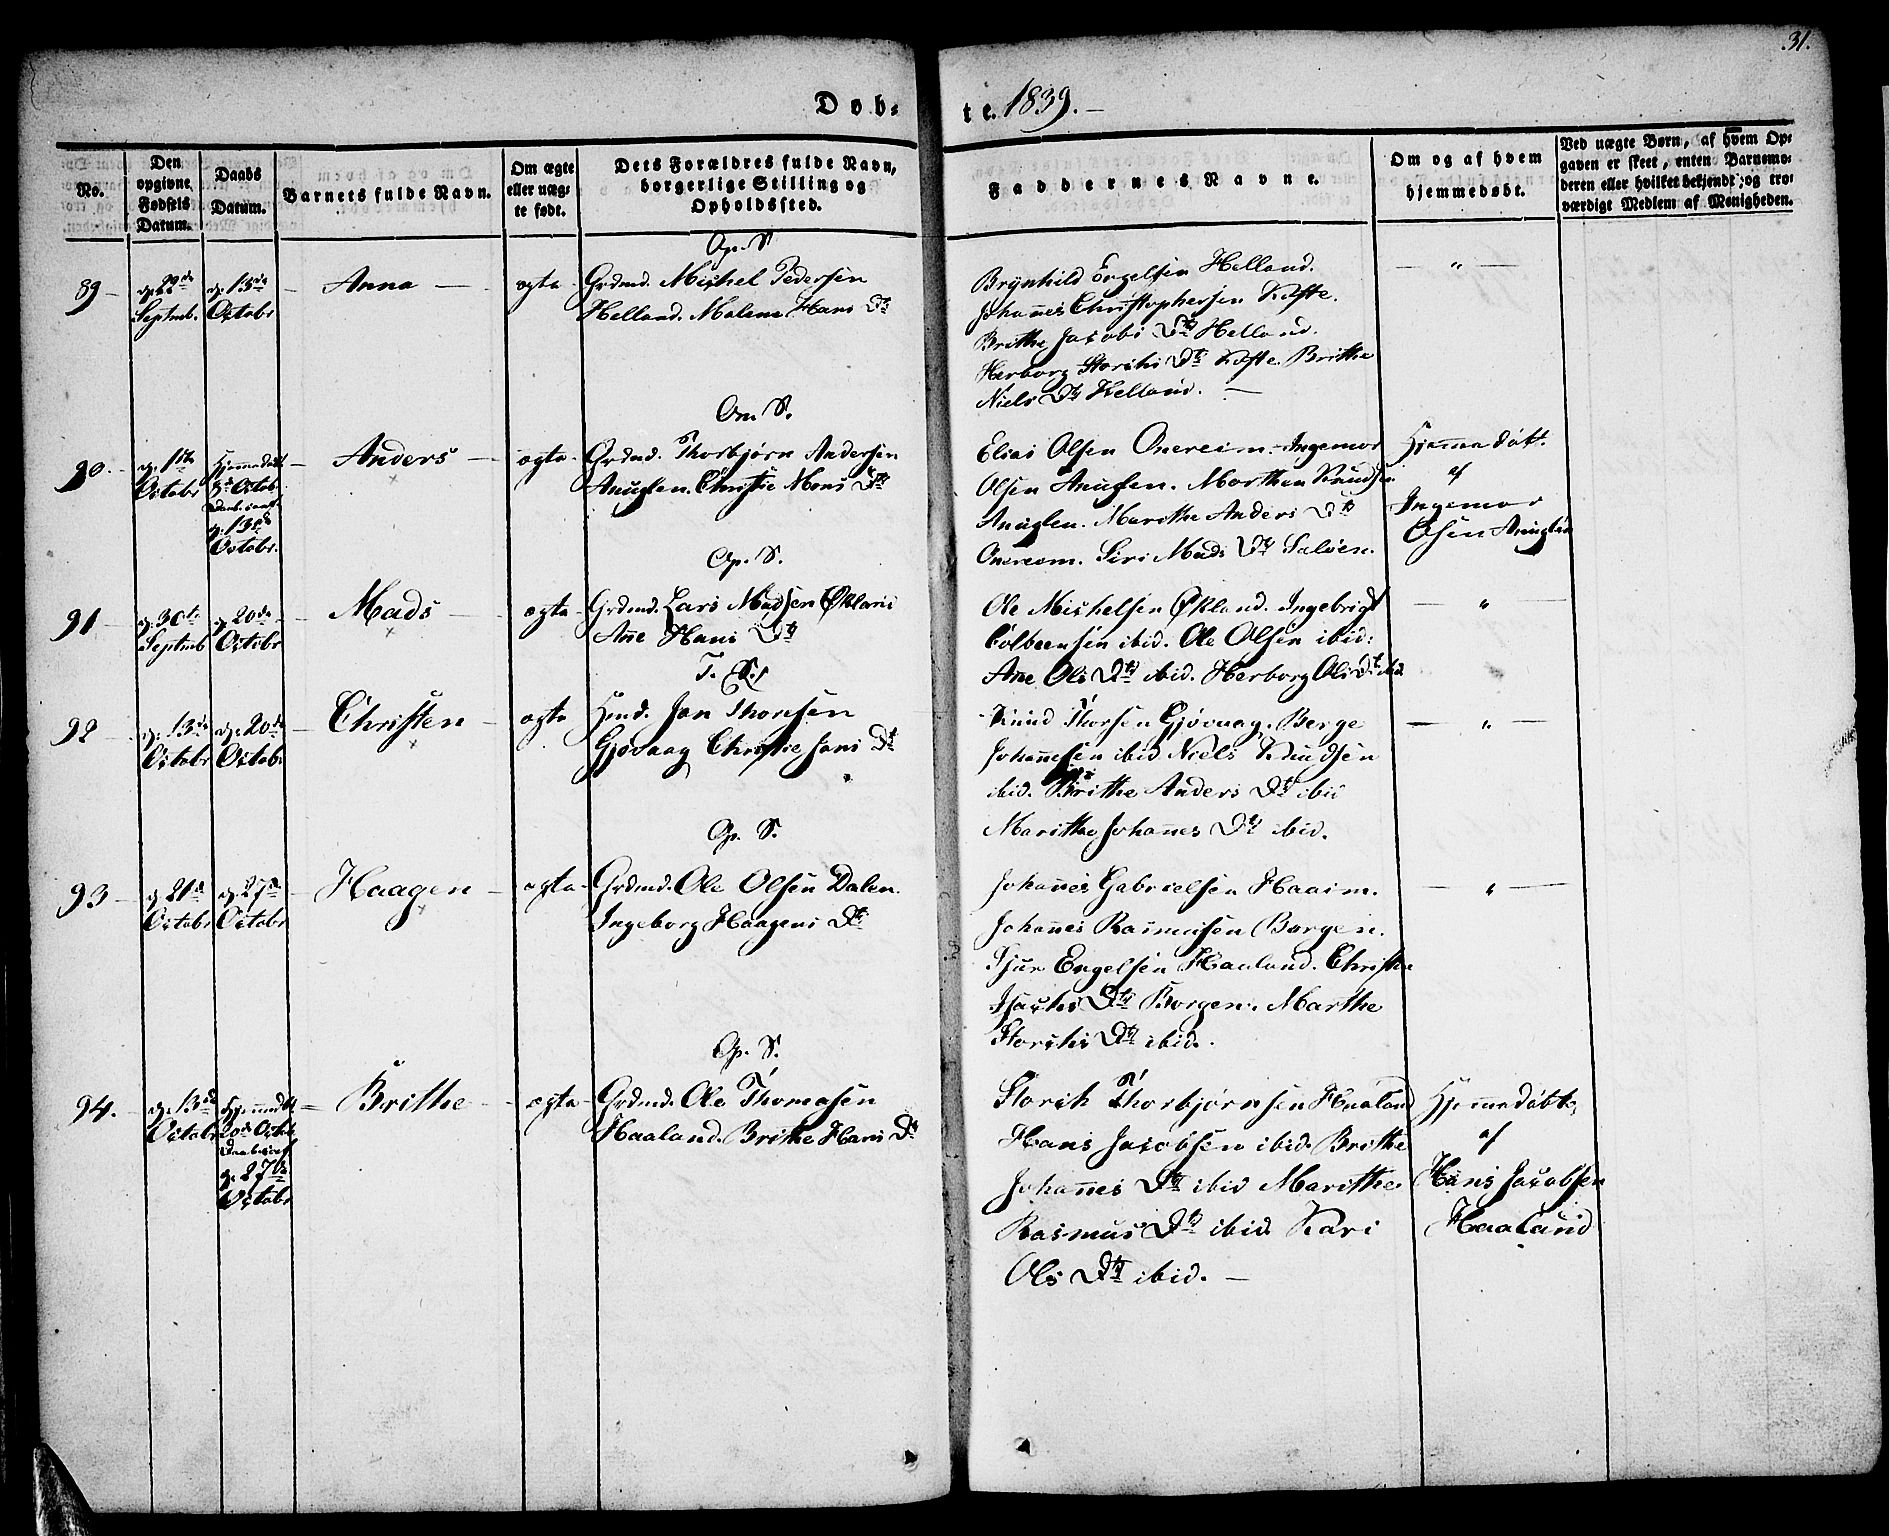 31.
Døb-
te. 1839. —
No.
Den opgivne Fødsels Datum.
Daabs Datum.
Barnets fulde Navn.
Om ægte eller uægte født.
Dets Forældres fulde Navn, borgerlige Stilling og Opholdssted.
Faddernes Navne.
Om og af hvem hjemmedøbt.
Ved uægte Børn, af hvem Opgaven er skeet, enten Barnemoderen eller hvilket bekjendt, og troværdigt Medlem af Menigheden.
Op. S.
89 —
d. 22de
Septmb.
d. 13de
Octobr
Anna —
ægte
Grdmd. Michel Pedersen
Helland. Malene Hans Dtr
Brynhild Engelsen Helland.
Johannes Christophersen
Brithe Jacobs Dtr Helland.
Herborg Storchs Dtr Brithe
Niels Dtr Helland. —
— " —
Om S.
90.
d. 1ste
Octobr
Hjemmedøbt
8de Octob
d. 13de
Octobr.
Anders —
ægte
Grdmd. Thorbjørn Andersen
Anuglen. Christie Mons Dtr
Elias Olsen Onereim. Ingemor
Olsen Anuglen. Morthen Knudsen
Anuglen. Marithe Anders Dtr
Onereim. Siri Mads Dtr Saløen.
Hjemmedøbt.
af
Ingemor
Olsen Anuglen
Op. S.
91 —
d. 30te
Septmb
d. 20de
Octobr
Mads —
ægte
Grdmd. Lars Madsen Økland
Ane Hans Dtr
Ole Michelsen Økland. Ingebrigt
Colbeensen ibid. Ole Olsen ibid:
Ane Ols Dtr ibid. Herborg Ols Dtr ibid
— " —
T. S.
92 —
d. 13de
Octobr
d. 20de
Octobr
Christen —
ægte
Hmd. Jan Thorsen
Gjøvaag Christie Jans Dtr
Knud Thorsen Gjøvaag. Berge
Johannesen ibid Niels Knudsen
ibid. Brithe Anders Dtr ibid
Marithe Johannes Dtr ibid.
— " —
Op. S.
93 —
d. 21de
Octobr
d. 27de
Octobr
Haagen —
ægte
Grdmd. Ole Olsen Dalen.
Ingeborg Haagens Dtr
Johannes Gabrielsen Haaim.
Johannes Rasmusen Borgen.
Sjur Engelsen Haaland. Christie
Dtr Borgen. Marthe
Storchs Dtr ibid.
— " —
Op. S.
94.
d. 13de
Octobr
Hjemmedøbt
20de Octob
d. 27de
Octobr
Brithe —
ægte
Grdmd. Ole Thomasen
Haaland. Brithe Hans Dtr
Storch Thorbjørnsen Haaland
Hans Jacobsen ibid. Brithe
Johannes Dtr ibid Marithe
Rasmus Dtr ibid. Kari
Ols Dtr ibid. —
Hjemmedøbt,
af
Hans Jacobsen
Haaland